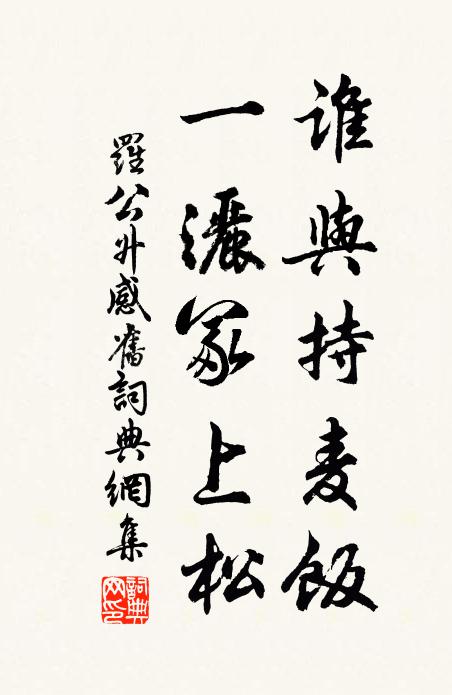 誰與持麦飯
一灑冢上松
羅公升感舊詞典網集
詞典網印